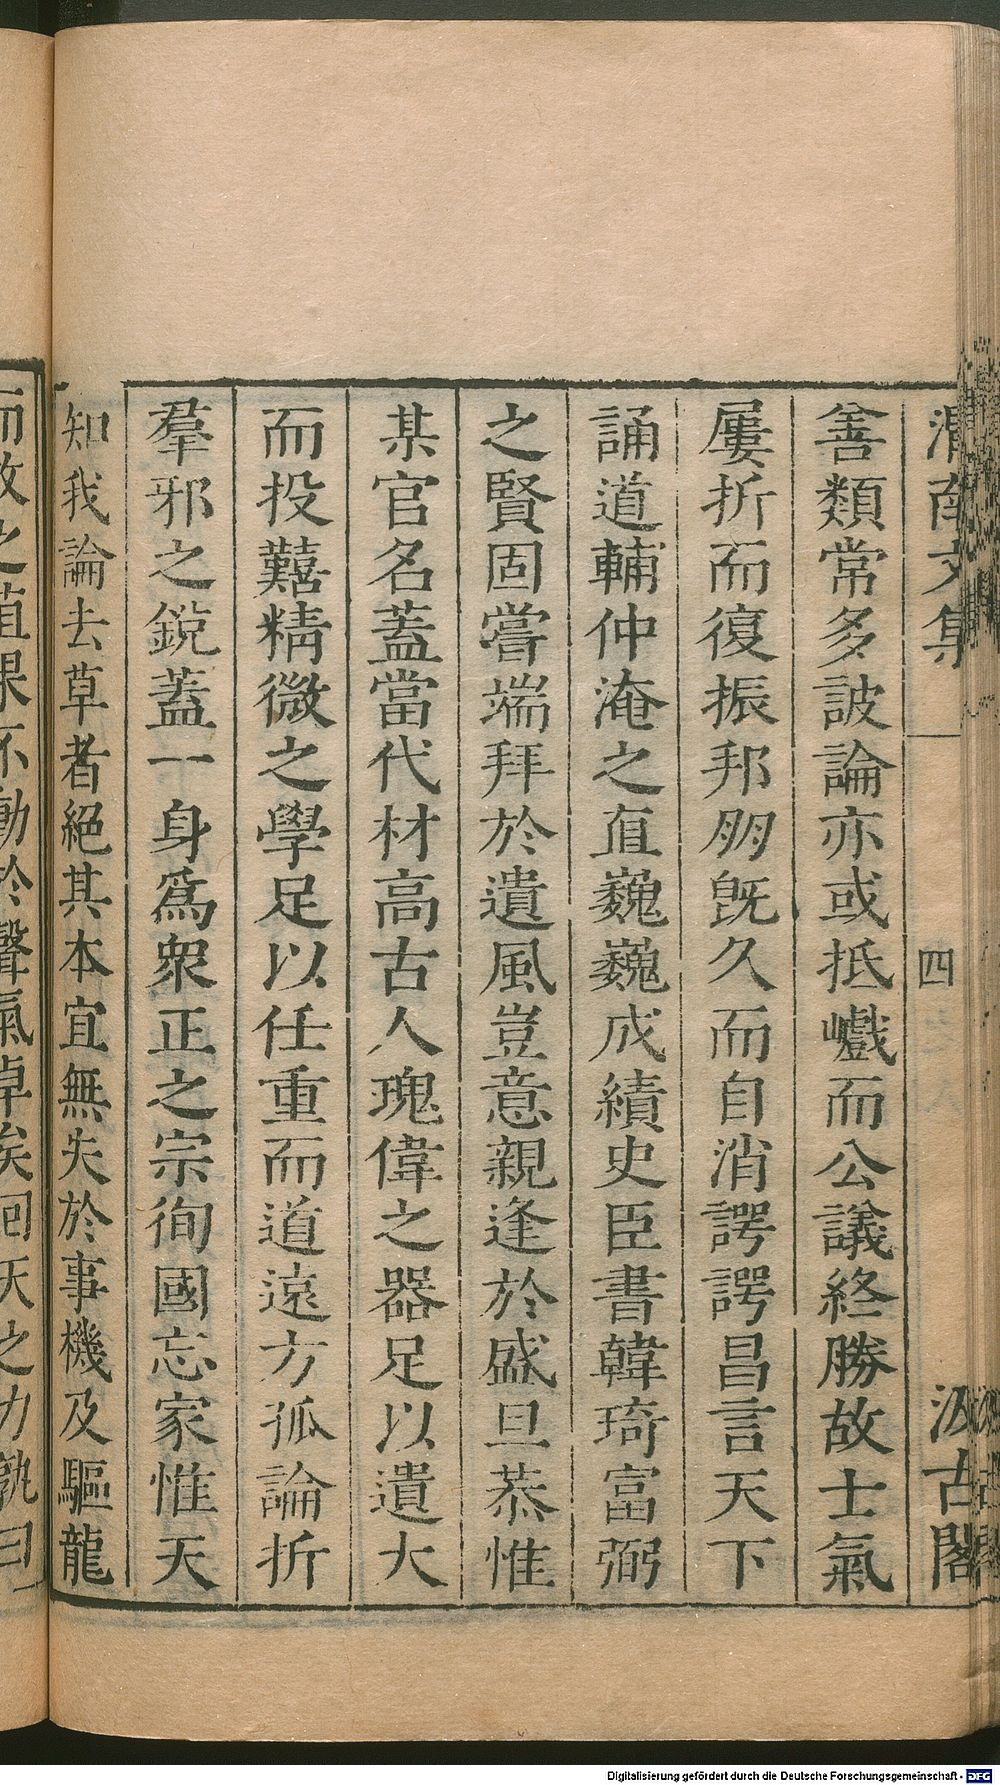 渭南文集 四 汲古閣
善類常多詖論亦或抵巇而公議終勝故士氣
屢折而復振邦朋既久而自消諤諤昌言天下
誦道輔仲淹之直巍巍成績史臣書韓琦富弼
之賢固嘗端拜於遺風豈意親逢於盛旦恭惟
某官名蓋當代材高古人瑰偉之器足以遺大
而投囏精微之學足以任重而道遠方孤論折
羣邪之鋭蓋一身爲衆正之宗徇國忘家惟天
知我論去草者絕其本宜無失於事機及驅龍
而放之菹果不動於聲氣卓矣回天之力孰曰
Digitalisierung gefördert durch die Deutsche Forschungsgemeinschaft - DFG